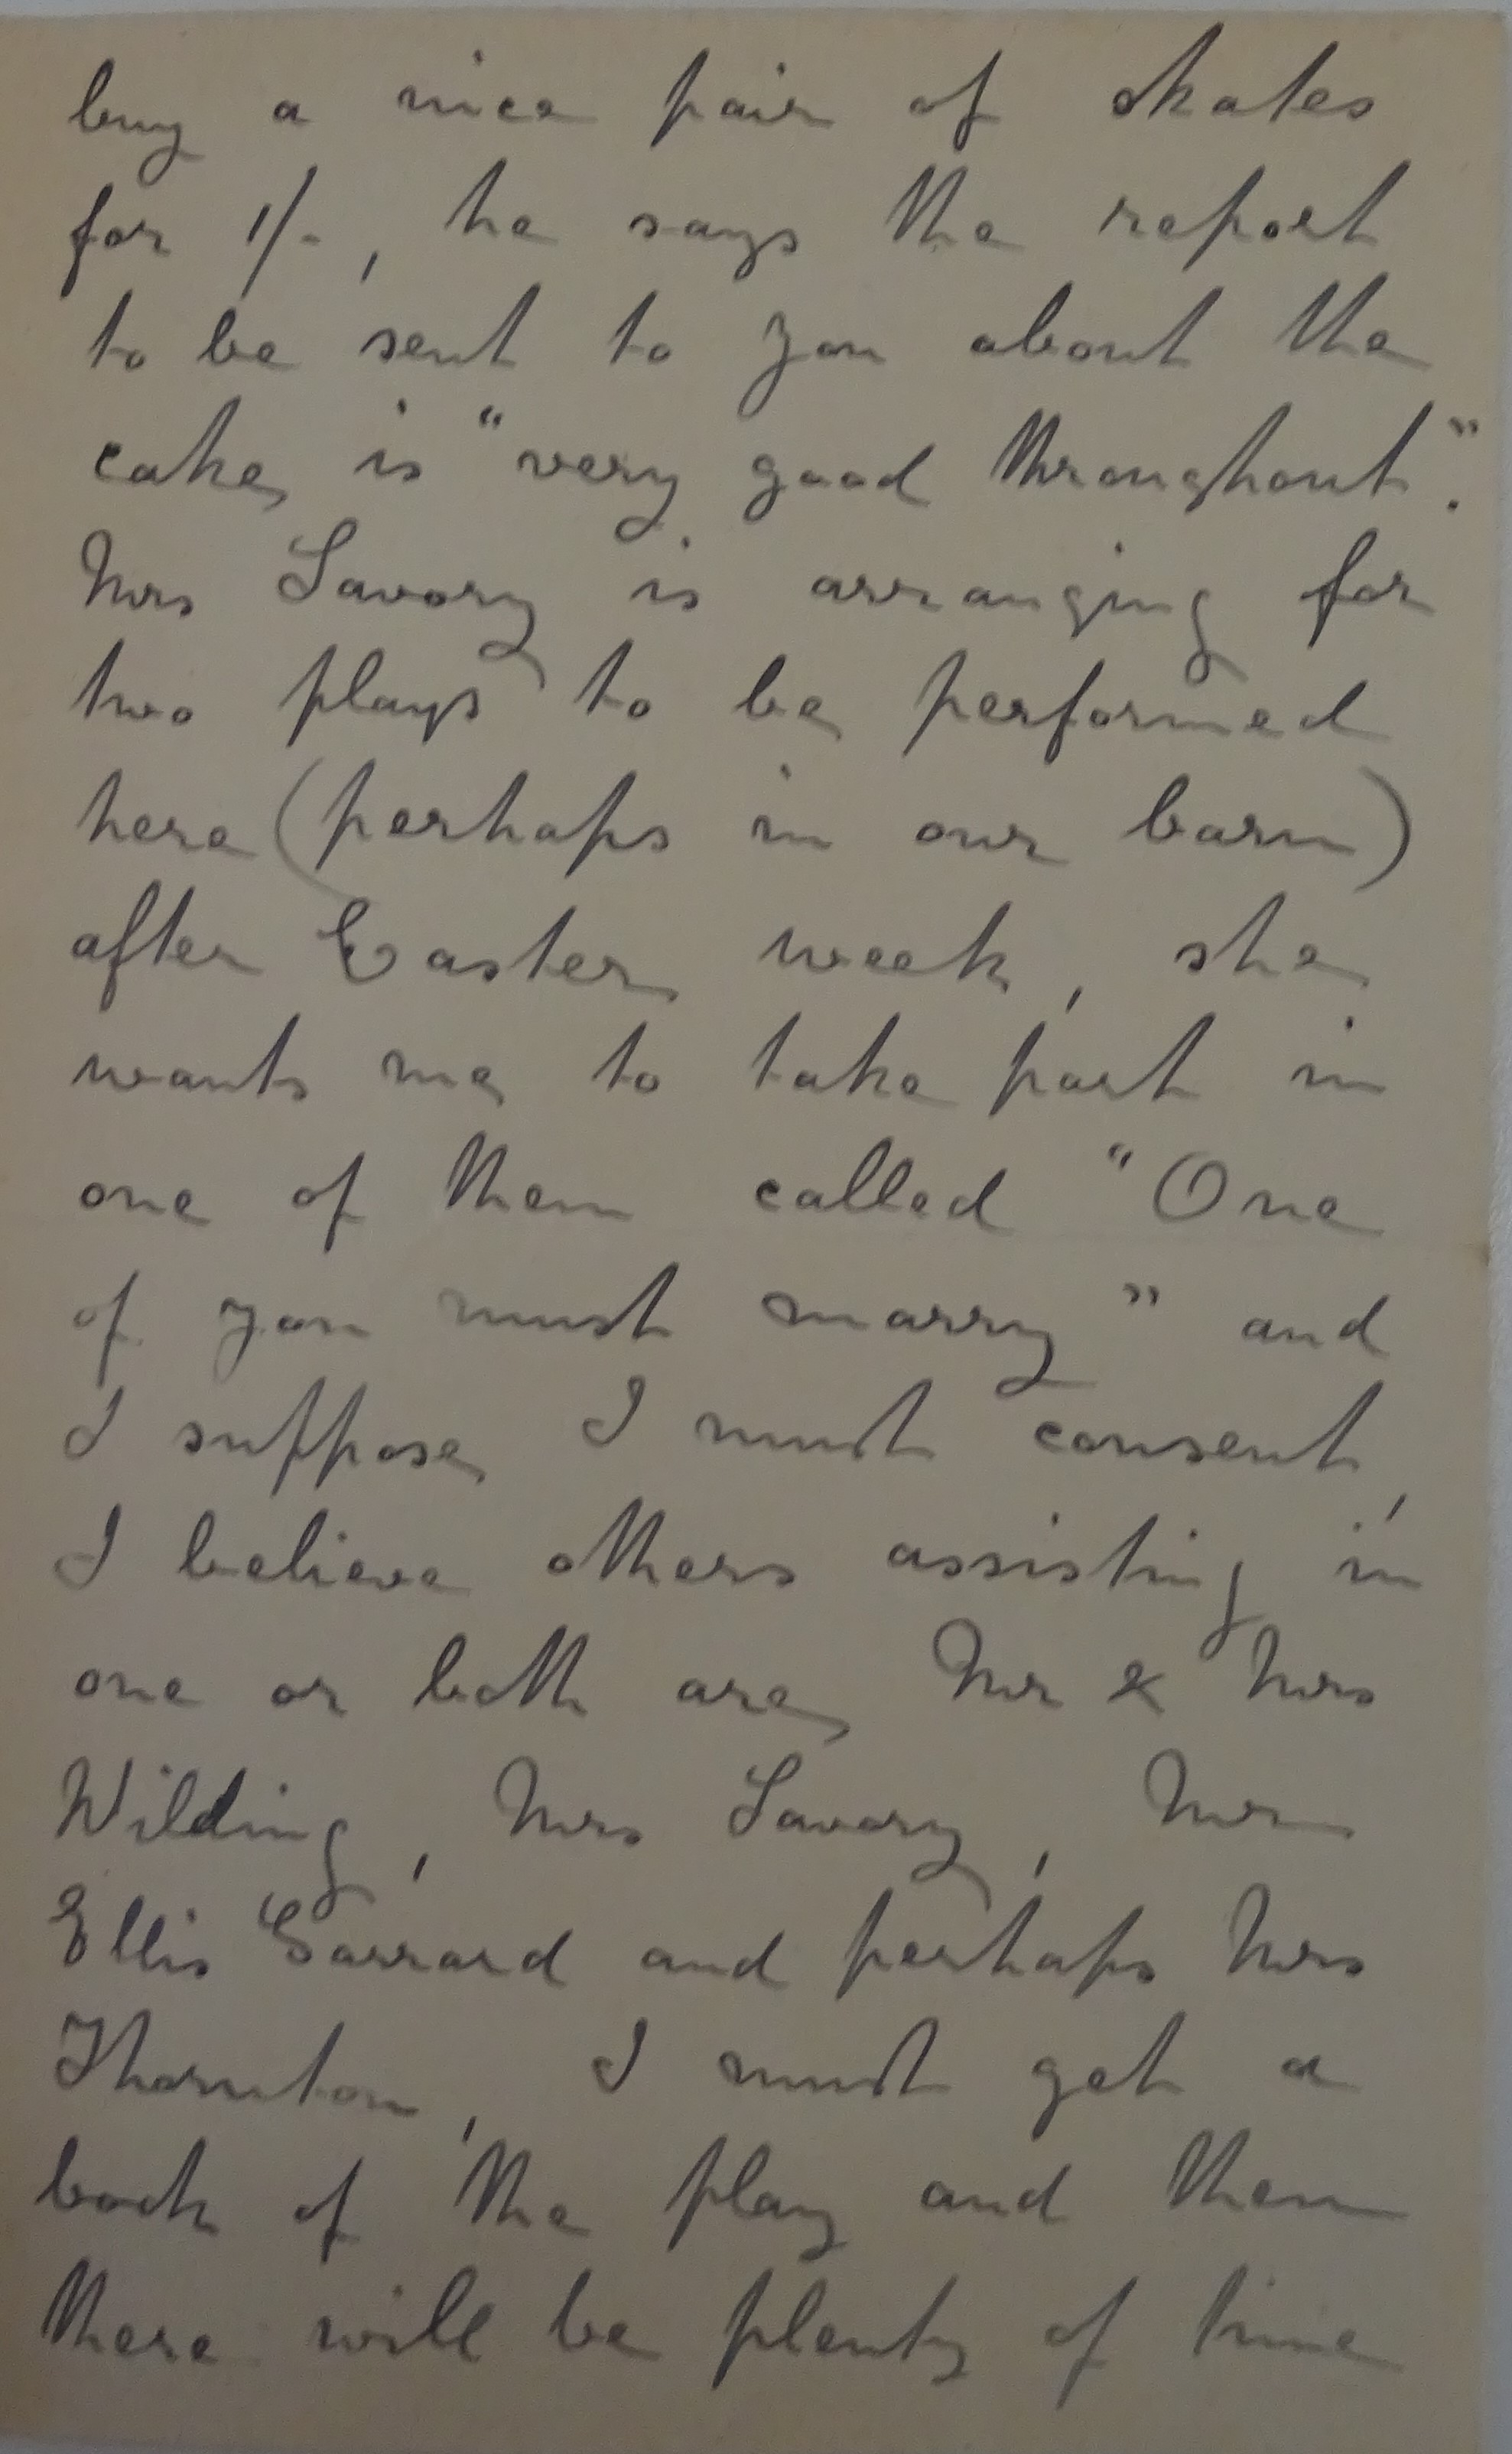 buy a nice pair of skates
for 1/-, he says the report
to be sent to you about the
cake is "very good throughout".
Mrs Savory is arranging for
two plays to be performed
here (perhaps in our barn)
after Easter week, she
wants me to take part in
one of them called "One
of you must marry" and
I suppose I must consent,
I believe others assisting in
one or both are Mr & Mrs
Wilding, Mrs Savory, Mr
Ellis Garrard and perhaps Mrs
Thornton, I must get a
book of the play and then
there will be plenty of time